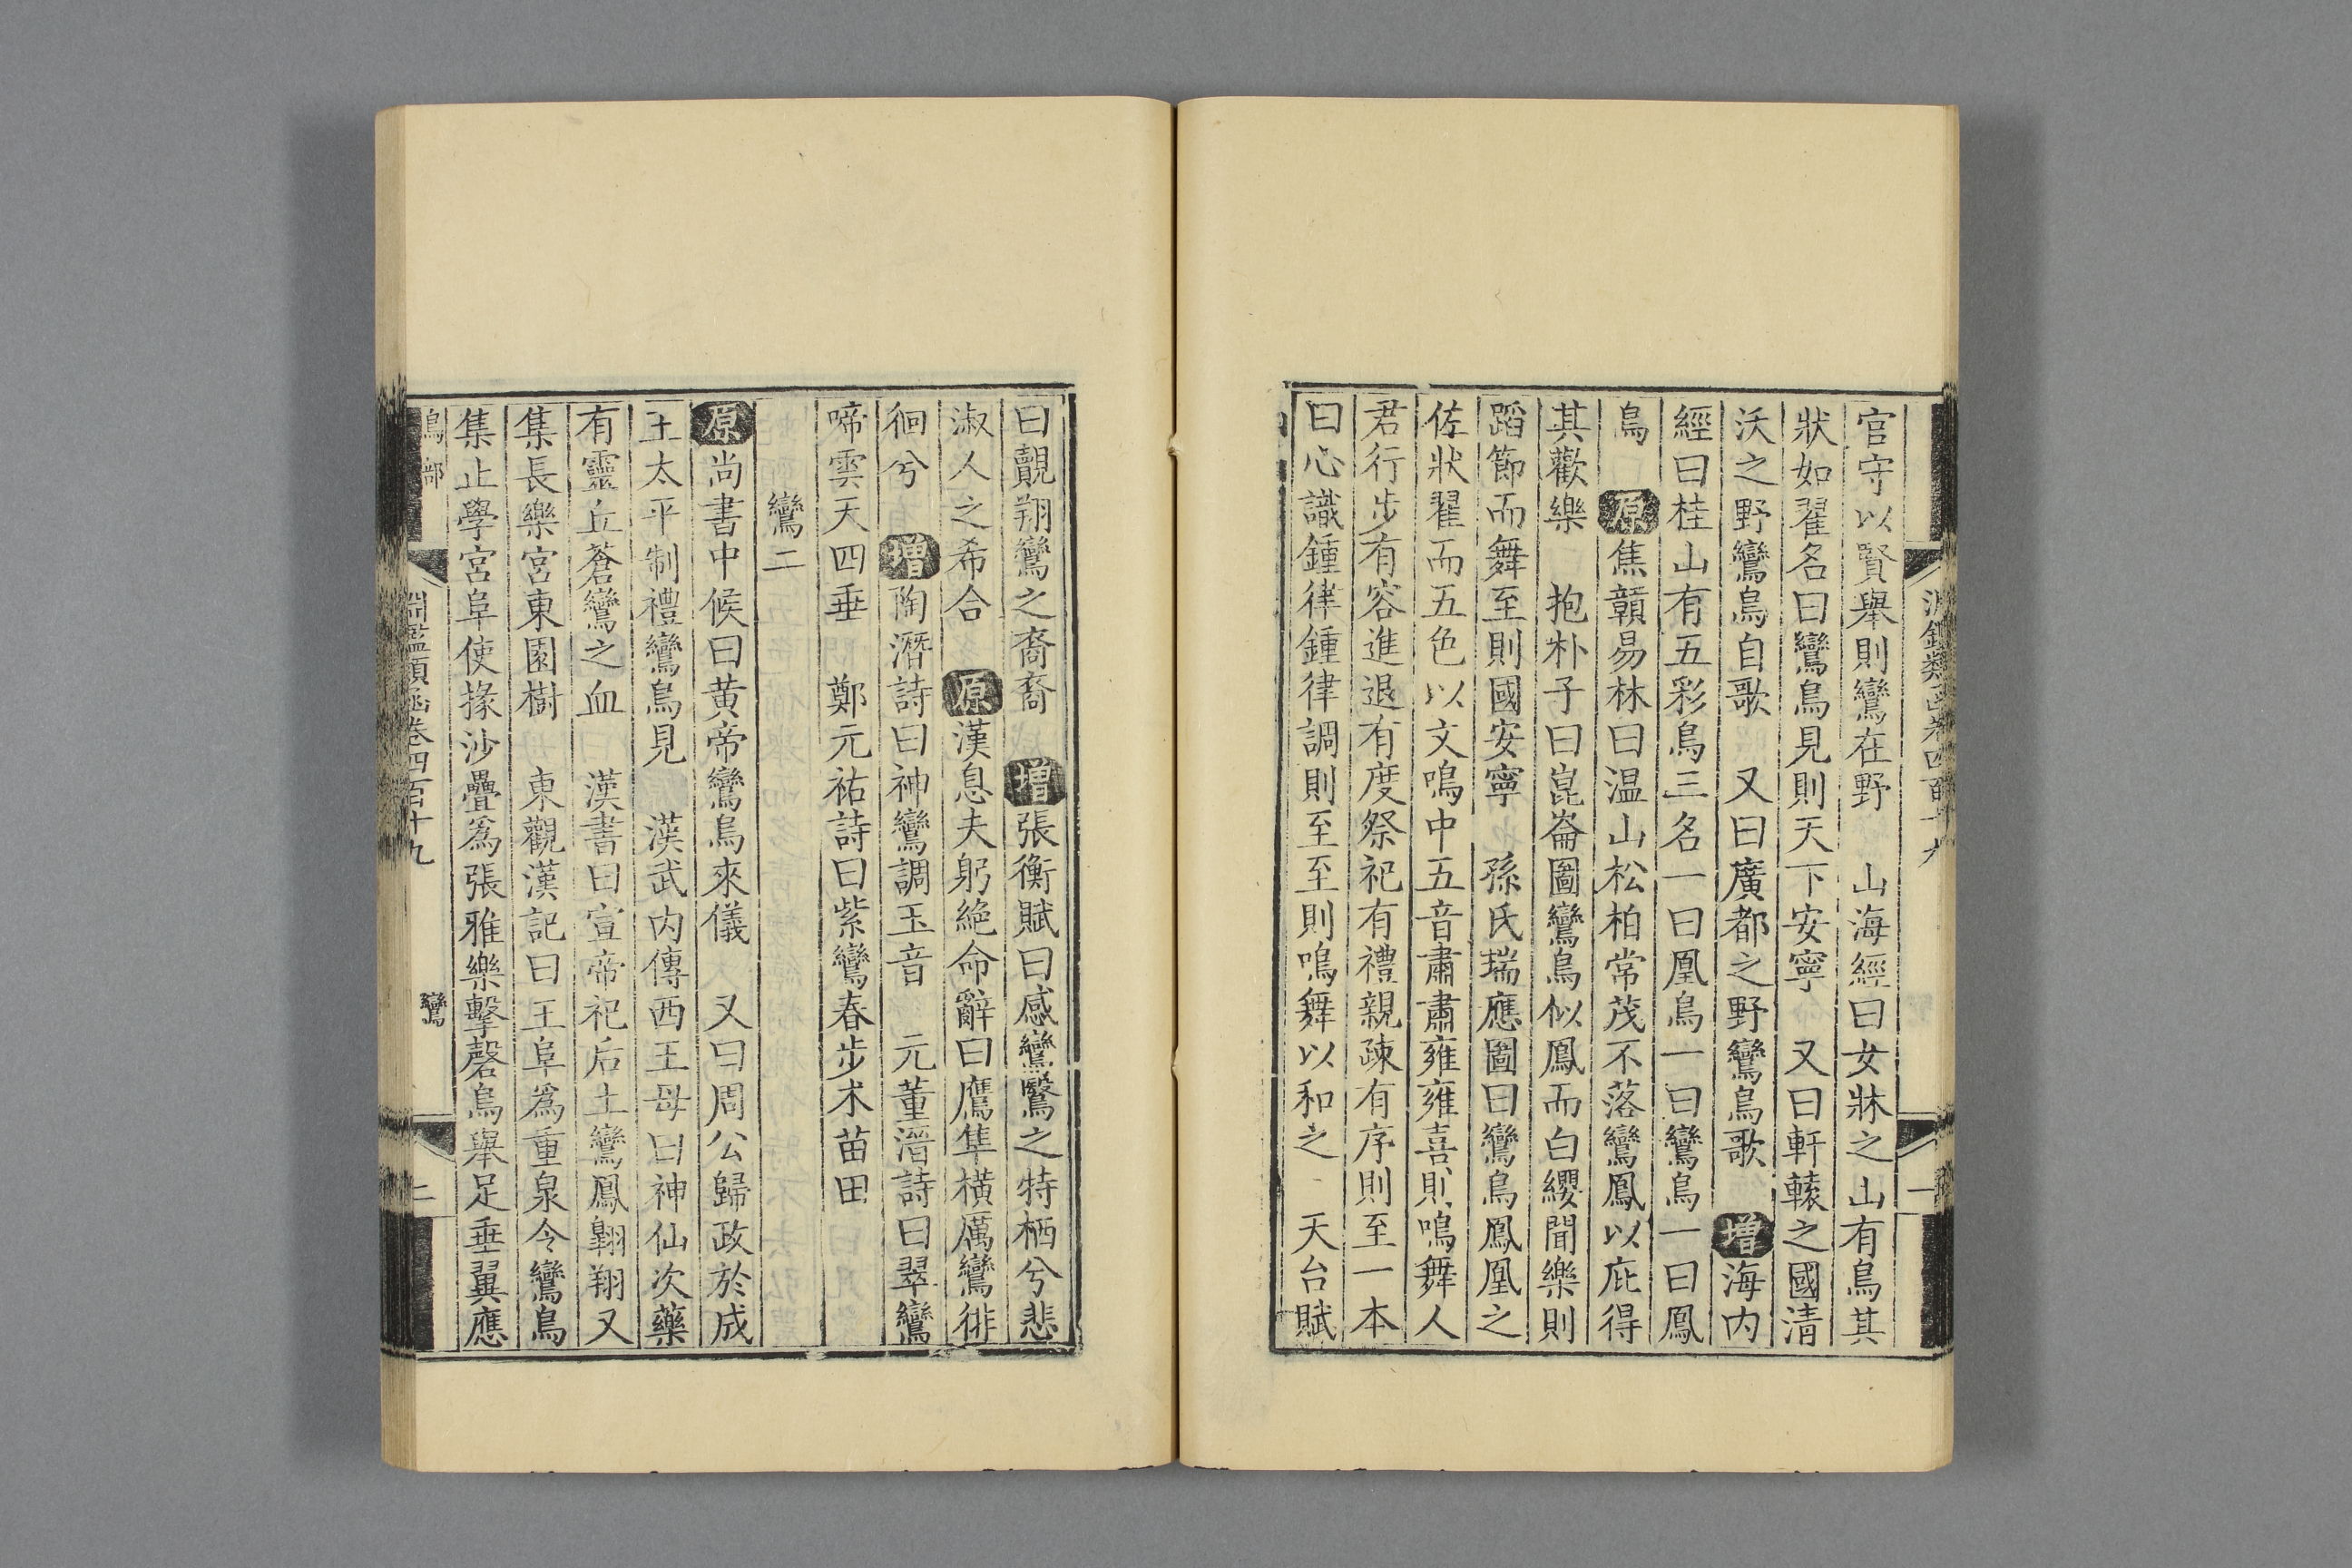 淵鑑類函卷四百十九
一
官守以賢舉則鸞在野 山海經曰女牀之山有鳥其
狀如翟名曰鸞鳥見則天下安寧 又曰軒轅之國清
沃之野鸞鳥自歌 又曰廣都之野鸞鳥歌 增海內
經曰桂山有五彩鳥三名一曰凰鳥一曰鸞鳥一曰鳳
鳥 原焦贛易林曰温山松柏常茂不落鸞鳳以庇得
其歡樂 抱朴子曰崑崙圖鸞鳥似鳳而白纓聞樂則
蹈節而舞至則國安寧 孫氏瑞應圖曰鸞鳥鳳凰之
佐狀翟而五色以文鳴中五音肅肅雍雍喜則鳴舞人
君行步有容進退有度祭祀有禮親疎有序則至一本
曰心識鍾律鍾律調則至至則鳴舞以和之 天台賦
曰覿翔鸞之裔裔 增張衡賦曰感鸞鷖之特栖兮悲
淑人之希合 原漢息夫躬絶命辭曰鷹隼橫厲鸞徘
徊兮 增陶潛詩曰神鸞調玉音 元董溍詩曰翠鸞
啼雲天四垂 鄭元祐詩曰紫鸞春步术苗田
鸞二
原尚書中候曰黄帝鸞鳥來儀 又曰周公歸政於成
王太平制禮鸞鳥見 漢武内傳西王母曰神仙次藥
有靈丘蒼鸞之血 漢書曰宣帝祀后土鸞鳳翱翔又
集長樂宮東園樹 東觀漢記曰王阜爲重泉令鸞鳥
集止學宮阜使掾沙疊爲張雅樂擊磬鳥舉足垂翼應
鳥部
淵鑑類函卷四百十九
鸞
二